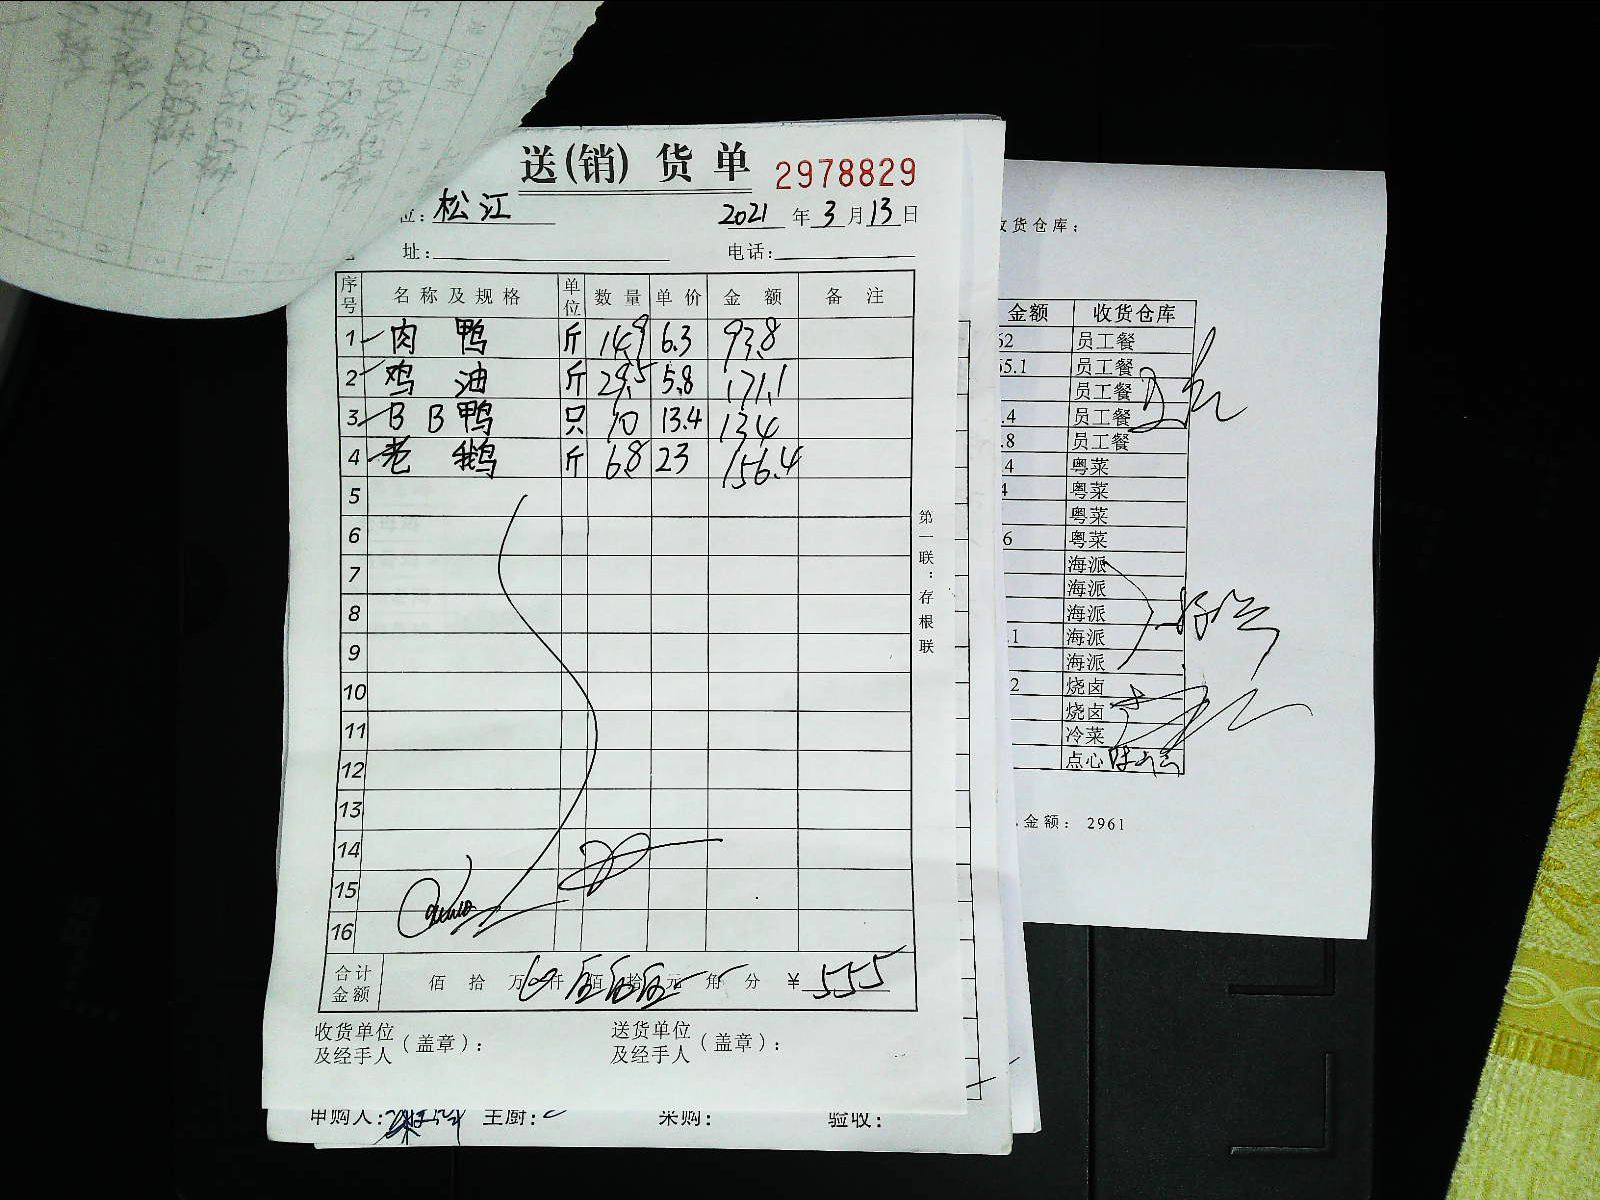 送(销)货单 2978829
位: 松江 2021 年 3 月 13 日
址: 电话:
序号 名称及规格 单位 数量 单价 金额 备注
1 肉鸭 斤 14.9 6.3 93.8
2 鸡油 斤 29.5 5.8 171.1
3 BB鸭 只 10 13.4 134
4 老鹅 斤 6.8 23 156.4
5
6
7
8
9
10
11
12
13
14
15
16
合计金额 佰 拾 万 仟 佰 拾 元 角 分 ¥ 555
第一联:存根联
收货单位及经手人(盖章): 送货单位及经手人(盖章):
申购人: 主厨: 采购: 验收:
收货仓库:
金额 收货仓库
62 员工餐
65.1 员工餐
员工餐
.4 员工餐
.8 员工餐
.4 粤菜
4 粤菜
粤菜
6 粤菜
海派
海派
海派
.1 海派
海派
2 烧卤
烧卤
冷菜
点心
金额: 2961